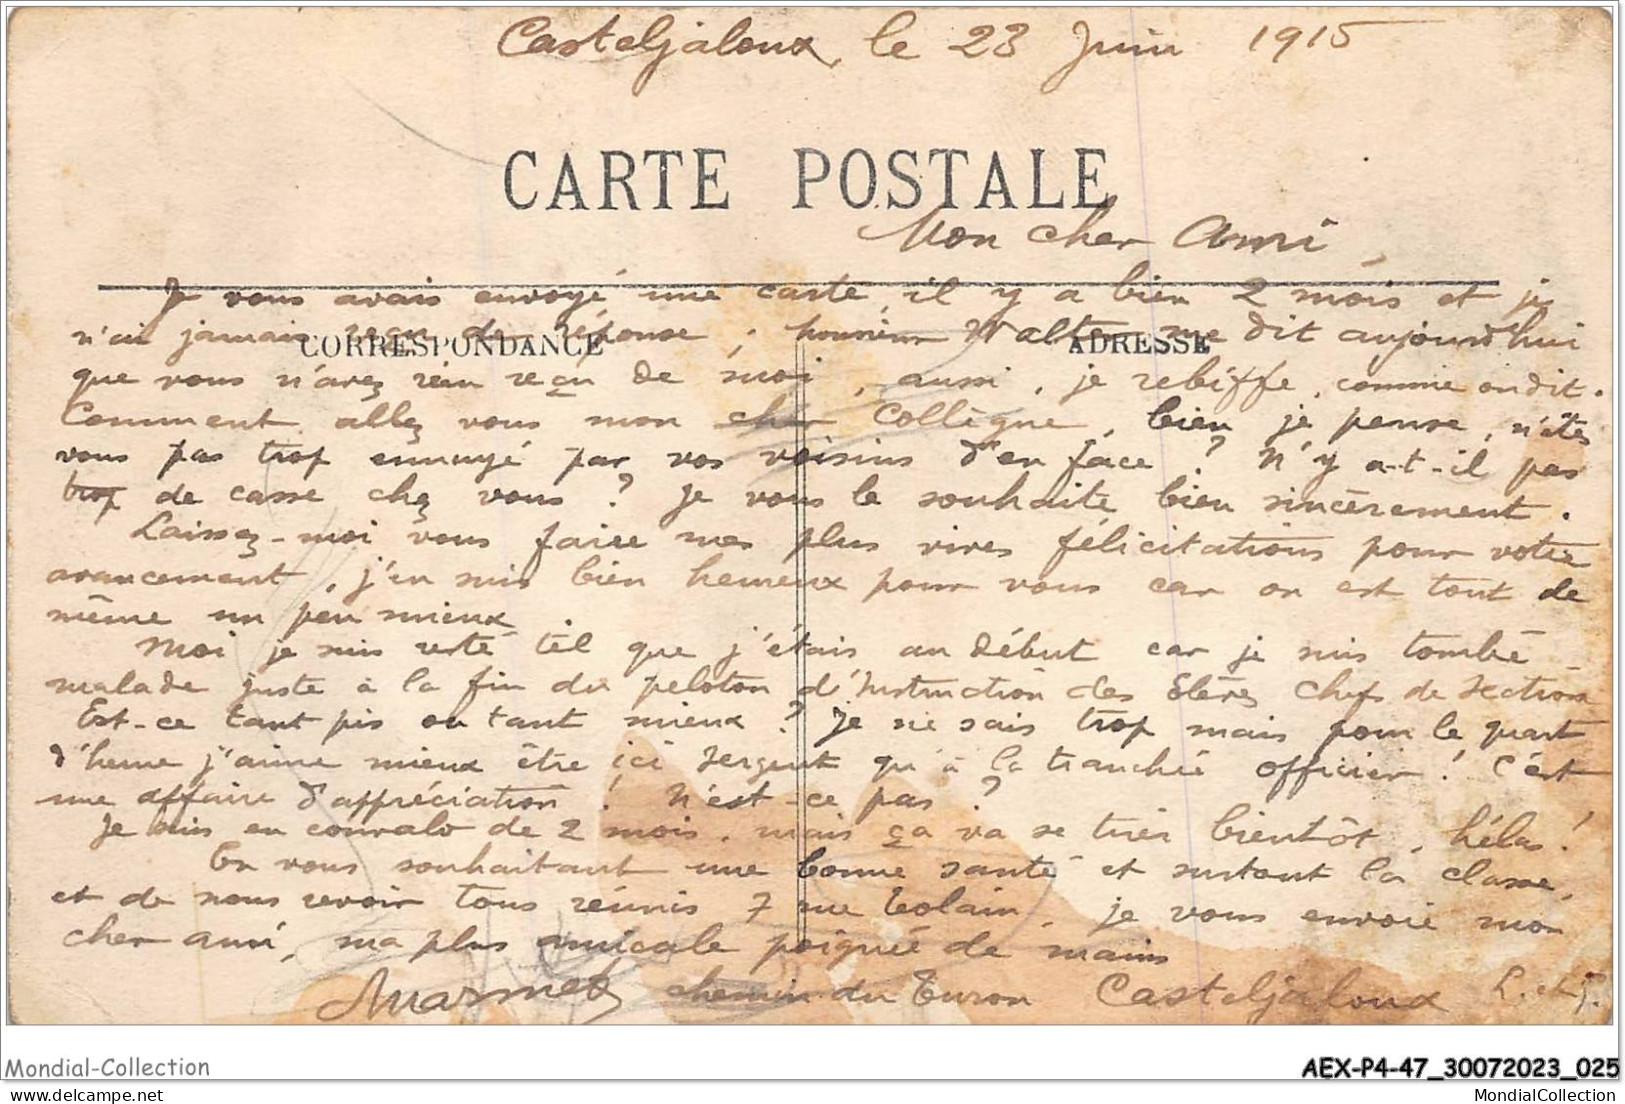 Casteljaloux, le 23 Juin 1915
CARTE POSTALE
Mon cher Ami
Je vous avais envoyé une carte, il y a bien 2 mois et je
n'ai jamais reçu de réponse, Walter me dit aujourd'hui
CORRESPONDANCE ADRESSE
que vous n'avez rien reçu de moi, aussi, je rebiffe, comme on dit.
Comment allez vous mon cher Collègue, bien je pense, n'êtes
vous pas trop ennuyé par vos voisins d'en face ? N'y a-t-il pas
trop de casse chez vous ? Je vous le souhaite bien sincèrement.
Laissez-moi vous faire mes plus vives félicitations pour votre
avancement, j'en suis bien heureux pour vous car on est tout de
même un peu mieux
Moi je suis resté tel que j'étais au début car je suis tombé
malade juste à la fin du peloton d'Instruction des Elèves Chefs de Section
Est-ce tant pis ou tant mieux ? Je ne sais trop mais pour le quart
d'heure j'aime mieux être ici sergent qu'à la tranchée officier ! C'est
une affaire d'appréciation ! N'est-ce pas ?
Je suis en convalo de 2 mois, mais ça va se tirer bientôt, hélas !
En vous souhaitant une bonne santé et surtout la classe,
et de nous revoir tous réunis 7 rue Tolain, je vous envoie mon
cher ami, ma plus amicale poignée de mains
Marmet chemin du Turon Casteljaloux L. et G.
Mondial-Collection
AEX-P4-47_30072023_025
www.delcampe.net
MondialCollection